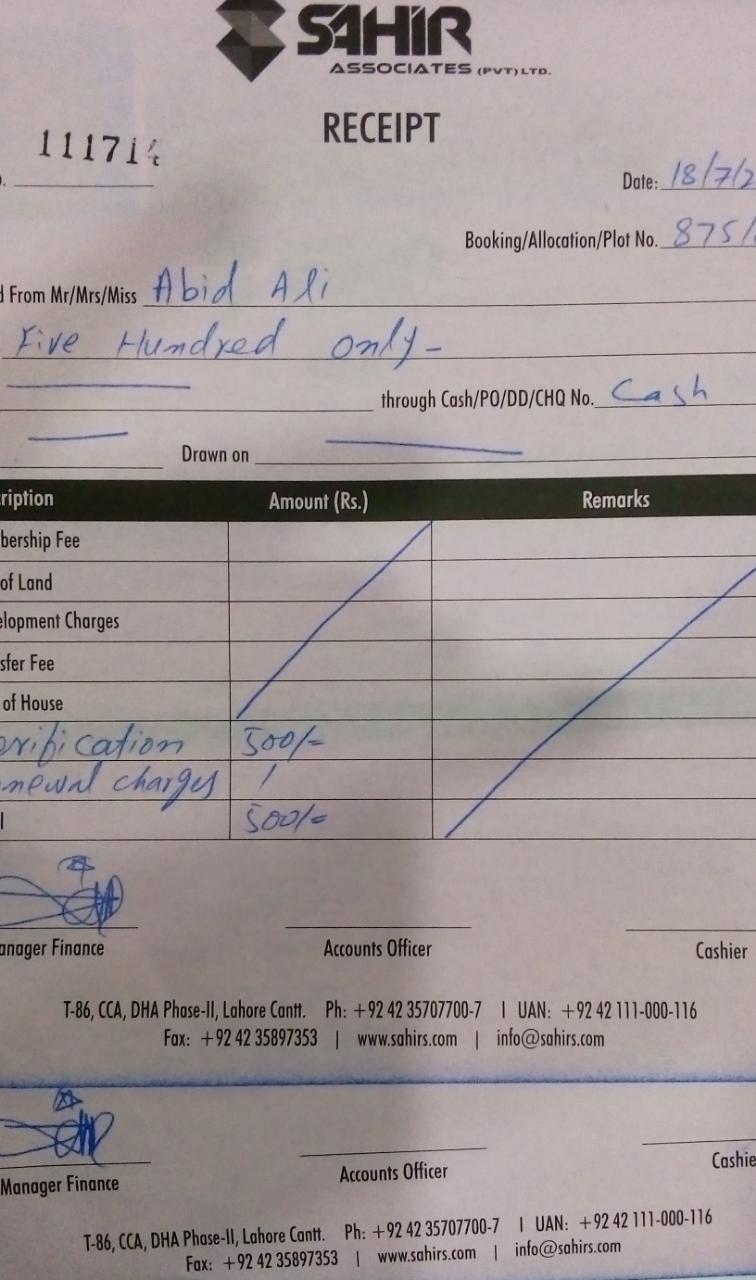 SAHIR
ASSOCIATES (PVT) LTD.
RECEIPT
11171
Date: 18/7/2
Booking/Allocation/Plot No. 875/
d From Mr/Mrs/Miss Abid Ali
Five Hundred only-
through Cash/PO/DD/CHQ No. Cash
Drawn on
ription Amount (Rs.) Remarks
bership Fee
of Land
elopment Charges
sfer Fee
of House
erification 500/=
newal charges /
l 500/=
anager Finance Accounts Officer Cashier
T-86, CCA, DHA Phase-II, Lahore Cantt. Ph: +92 42 35707700-7 | UAN: +92 42 111-000-116
Fax: +92 42 35897353 | www.sahirs.com | info@sahirs.com
Manager Finance Accounts Officer Cashie
T-86, CCA, DHA Phase-II, Lahore Cantt. Ph: +92 42 35707700-7 | UAN: +92 42 111-000-116
Fax: +92 42 35897353 | www.sahirs.com | info@sahirs.com